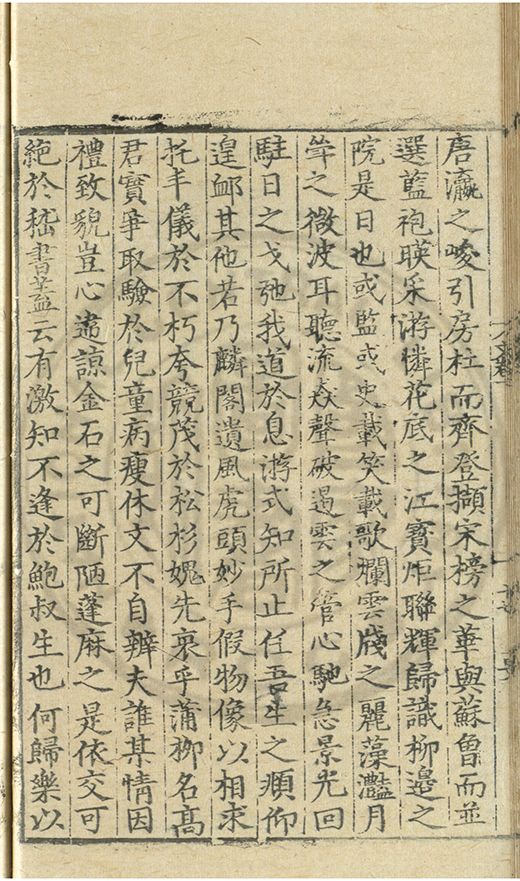 唐瀛之峻引房杜而齊登擷宋榜之華與蘇魯而並
選藍袍暎采游憐花底之江寳炬聯輝歸識柳邊之
院是日也或監或史載笑載歌爛雲牋之麗藻灩月
䇶之微波耳聽流聲破遏雲之管心馳急景光回
駐日之戈弛我道於息游式知所止任吾生之順仰
遑邮其他若乃麟閣遺風虎頭妙手假物像以相求
托丰儀於不朽夸競茂於松杉媿先衰乎蒲柳名高
君實爭取驗於兒童病瘦休文不自辨夫誰某情因
禮致貌豈心遺諒金石之可斷陋蓬麻之是依交可
絶於嵇書蓋云有激知不逢於鮑叔生也何歸樂以